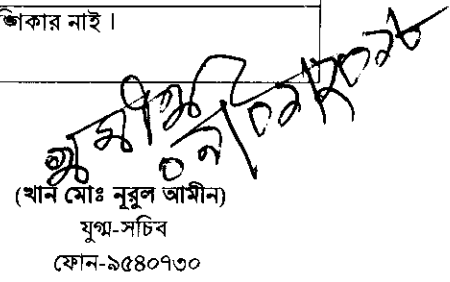 ঙ্গিকার নাই ।
(খান মোঃ নূরুল আমীন)
যুগ্ম-সচিব
ফোন-৯৫৪০৭৩০